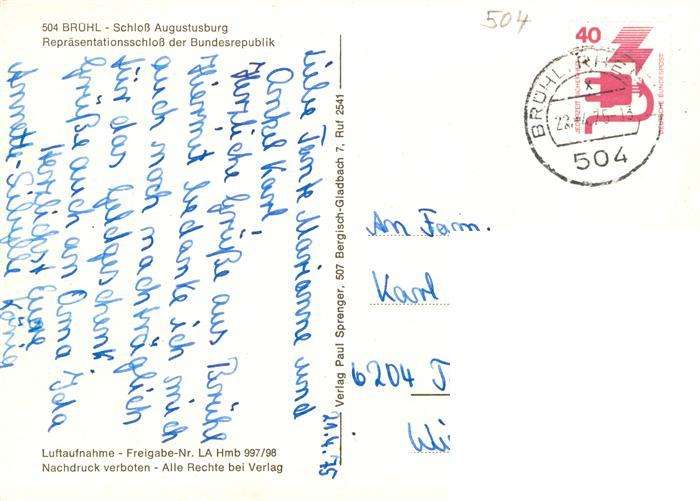 504 BRÜHL - Schloß Augustusburg
Repräsentationsschloß der Bundesrepublik
504
40
JEDERZEIT SICHERHEIT
DEUTSCHE BUNDESPOST
BRÜHL, RHEINL
504
21.4.75
Liebe Tante Marianne und
Onkel Karl!
Herzliche Grüße aus Brühl
Hiermit bedanke ich mich
auch noch nachträglich
für das Geldgeschenk.
Grüße auch an Oma Ida
Herzlichst Eure
Annette-Sibylle König
Verlag Paul Sprenger, 507 Bergisch-Gladbach 7, Ruf 2541
An Fam.
Karl
6204 T
Wi
Luftaufnahme - Freigabe-Nr. LA Hmb 997/98
Nachdruck verboten - Alle Rechte bei Verlag